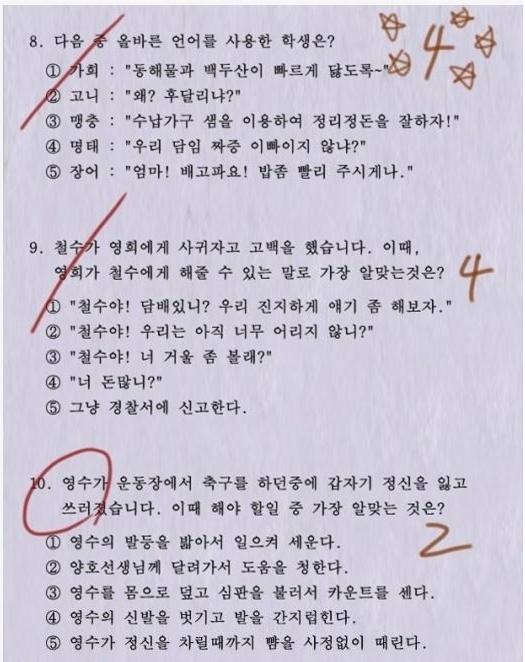 8. 다음 중 올바른 언어를 사용한 학생은?
① 가희 : "동해물과 백두산이 빠르게 닳도록~"
② 고니 : "왜? 후달리냐?"
③ 맹충 : "수납가구 샘을 이용하여 정리정돈을 잘하자!"
④ 명태 : "우리 담임 짜증 이빠이지 않냐?"
⑤ 장어 : "엄마! 배고파요! 밥좀 빨리 주시게나."
4
9. 철수가 영희에게 사귀자고 고백을 했습니다. 이때,
영희가 철수에게 해줄 수 있는 말로 가장 알맞는것은?
4
① "철수야! 담배있니? 우리 진지하게 얘기 좀 해보자."
② "철수야! 우리는 아직 너무 어리지 않니?"
③ "철수야! 너 거울 좀 볼래?"
④ "너 돈많니?"
⑤ 그냥 경찰서에 신고한다.
10. 영수가 운동장에서 축구를 하던중에 갑자기 정신을 잃고
쓰러졌습니다. 이때 해야 할일 중 가장 알맞는 것은?
2
① 영수의 발등을 밟아서 일으켜 세운다.
② 양호선생님께 달려가서 도움을 청한다.
③ 영수를 몸으로 덮고 심판을 불러서 카운트를 센다.
④ 영수의 신발을 벗기고 발을 간지럽힌다.
⑤ 영수가 정신을 차릴때까지 뺨을 사정없이 때린다.